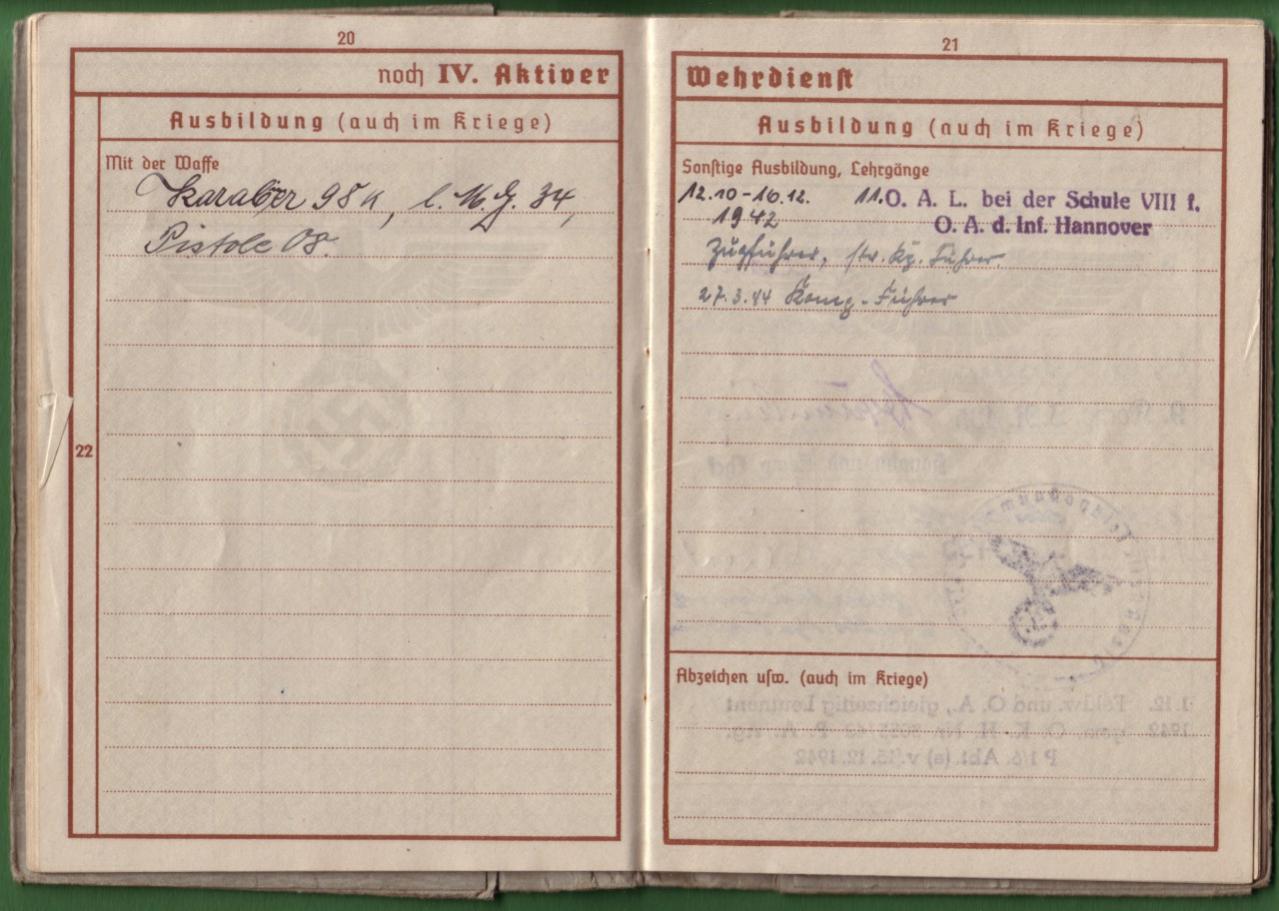 20
noch IV. Aktiver
Ausbildung (auch im Kriege)
Mit der Waffe
Karab. 98k, l. M.G. 34,
Pistole 08.
22
21
Wehrdienst
Ausbildung (auch im Kriege)
Sonstige Ausbildung, Lehrgänge
12.10-16.12. 11.O. A. L. bei der Schule VIII f.
1942 O. A. d. Inf. Hannover
Zugführer, stv. Kp. Führer
27.3.44 Komp.-Führer
Abzeichen usw. (auch im Kriege)
1. 12. Feldw. und O. A., gleichzeitig Leutnant
1942
P 1/6. Abt. (a) v. 15. 12. 1942